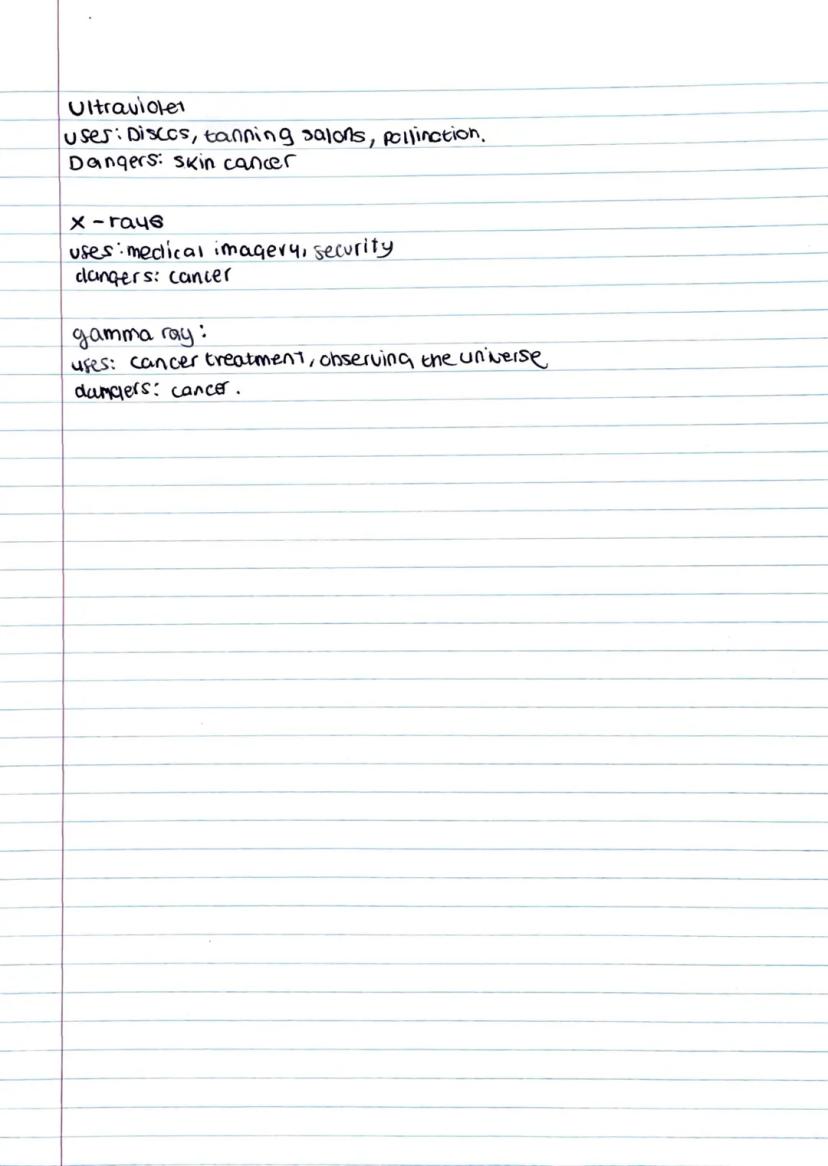 Ultraviolet
uses: Discos, tanning salons, pollination.
Dangers: skin cancer
x-rays
uses: medical imagery, security
dangers: cancer
gamma ray:
uses: cancer treatment, observing the universe
dangers: cancer.